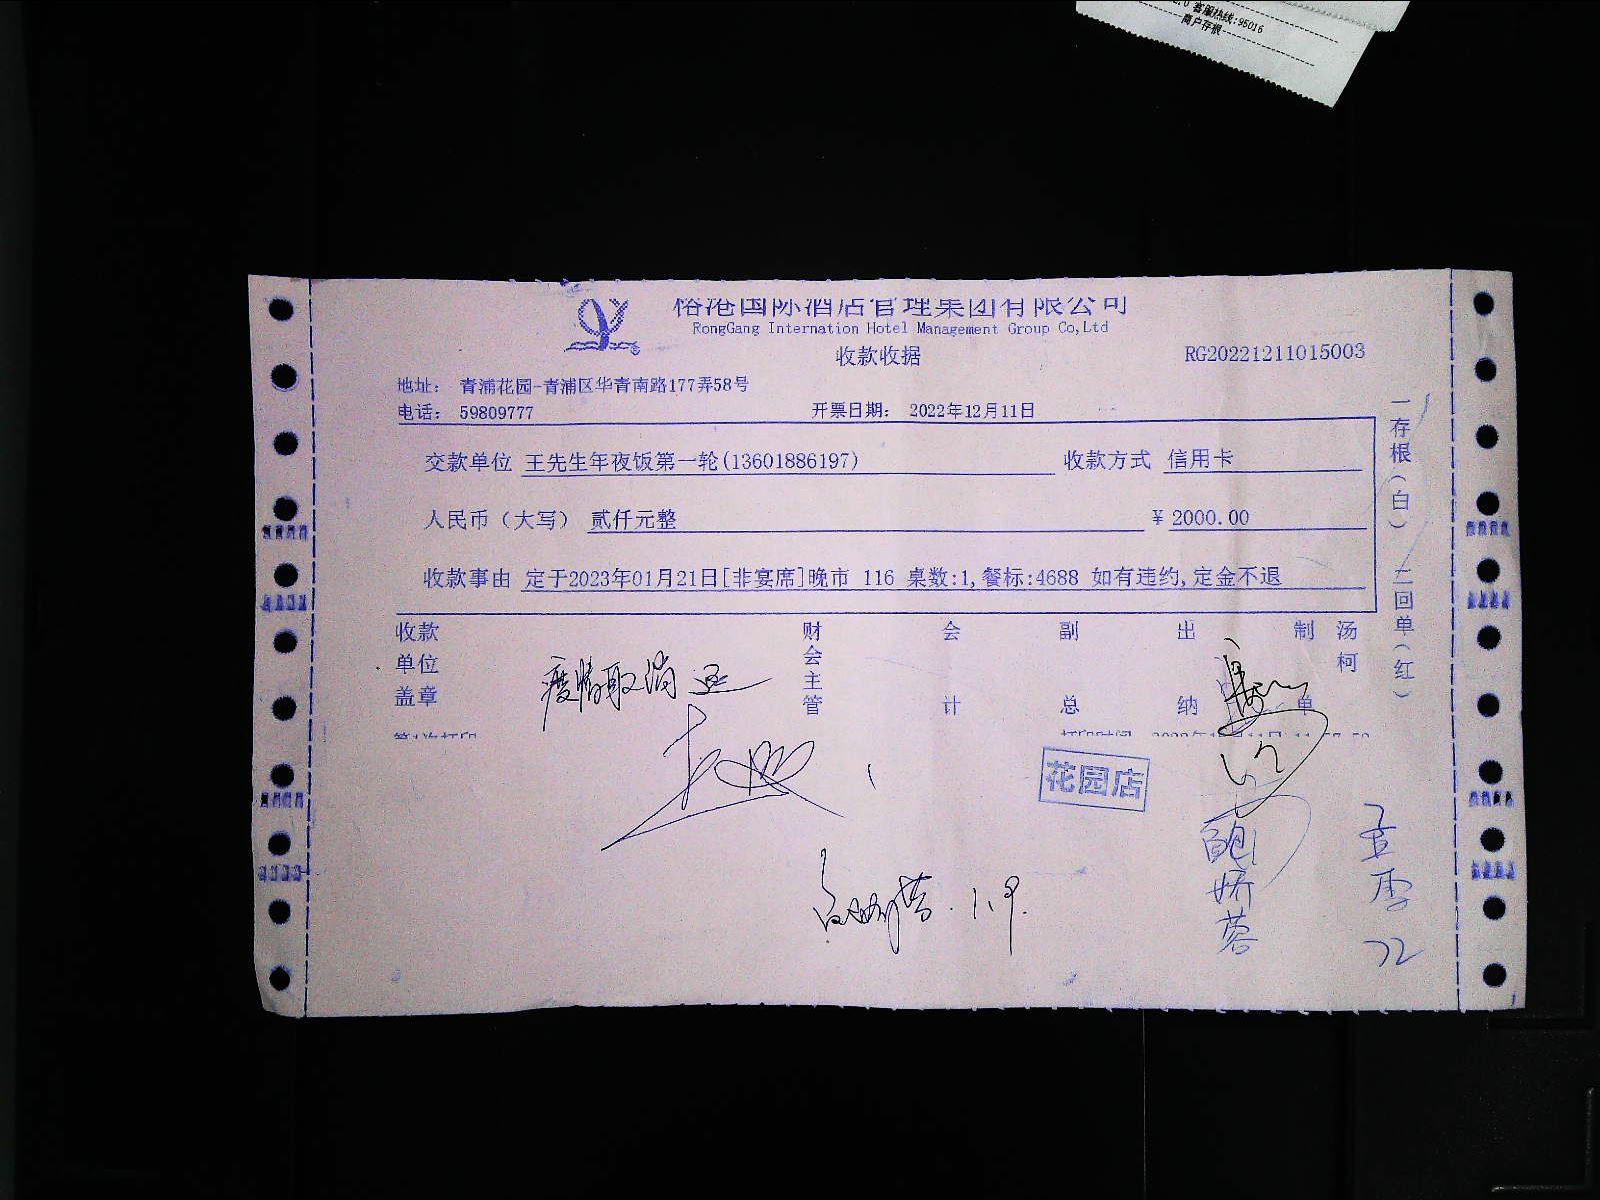 客服热线:95016
商户存根
国际酒店管理集团有限公司
RongGang Internation Hotel Management Group Co,Ltd
收款收据
RG20221211015003
地址: 青浦花园-青浦区华青南路177弄58号
电话: 59809777 开票日期: 2022年12月11日
交款单位 王先生年夜饭第一轮(13601886197) 收款方式 信用卡
人民币(大写) 贰仟元整 ¥ 2000.00
收款事由 定于2023年01月21日[非宴席]晚市 116 桌数:1,餐标:4688 如有违约,定金不退
一存根(白) 二回单(红)
收款单位盖章 财会主管 会计 副总 出纳 制单 汤柯
疫情取消 退
花园店
1.9.